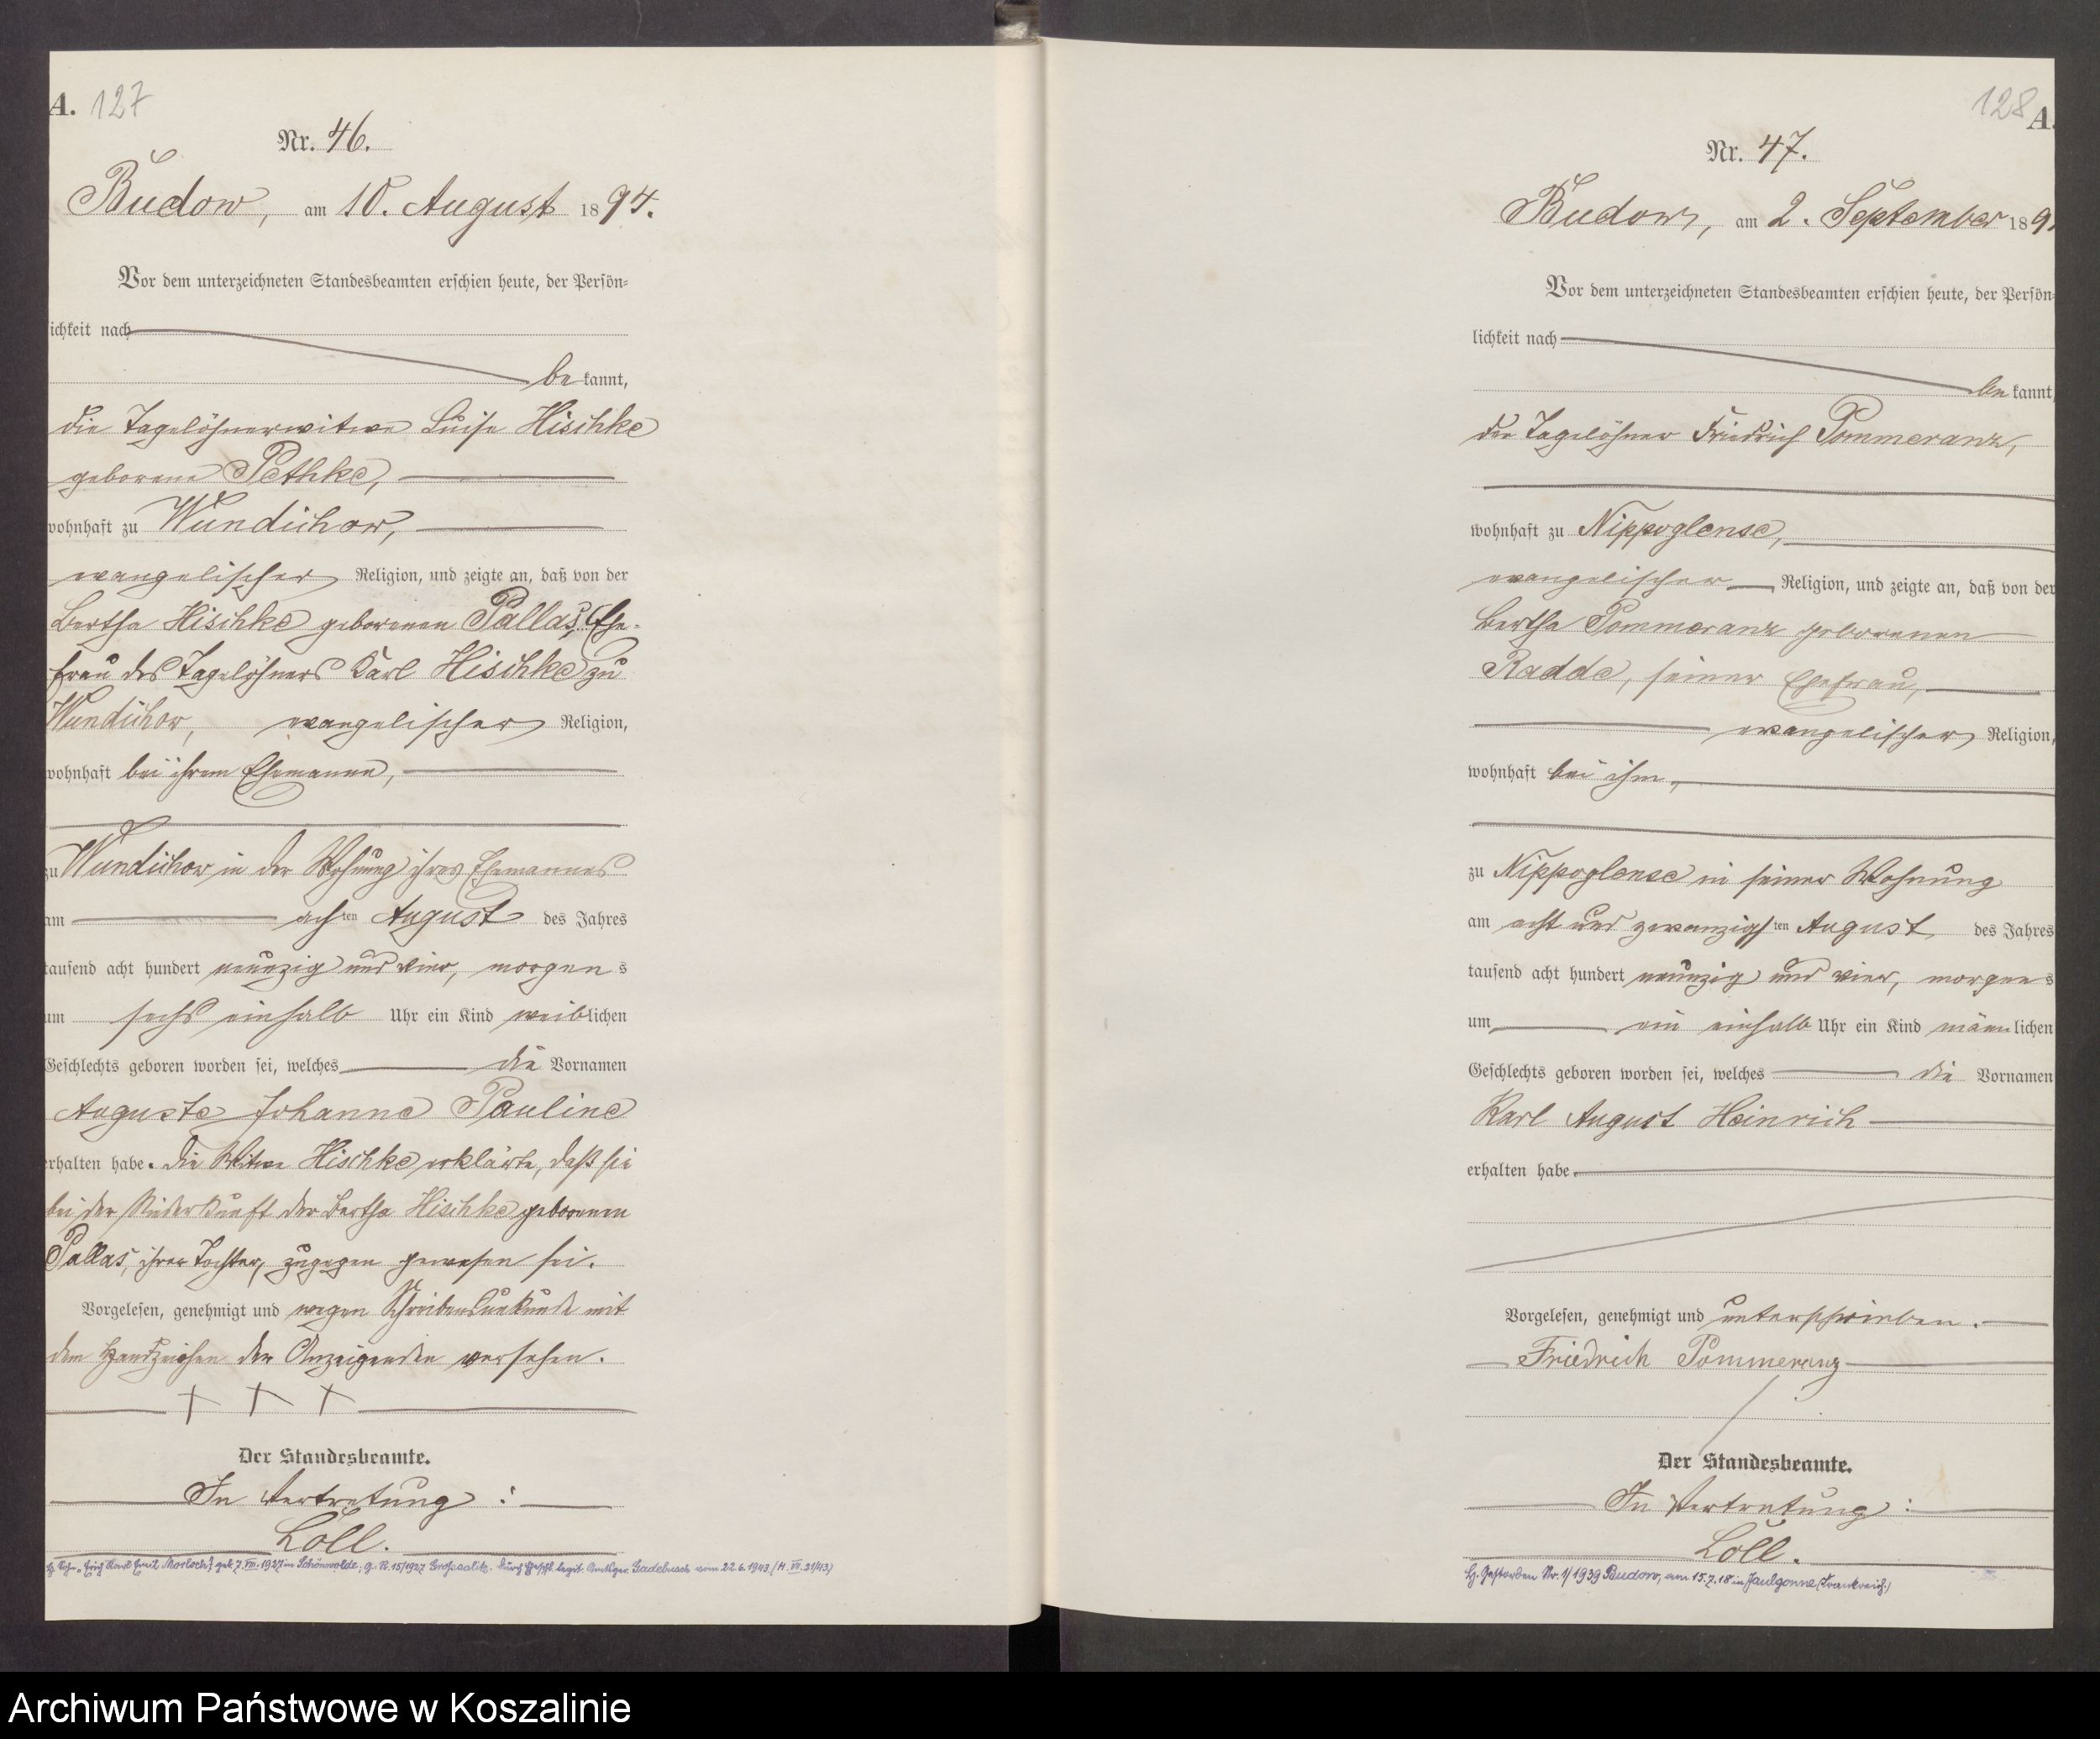 A. 127
Nr. 46.
Budow, am 10. August 1894.
Vor dem unterzeichneten Standesbeamten erschien heute, der Persön-
lichkeit nach
bekannt,
die Tagelöhnerwitwe Luise Hischke
geborene Pethke,
wohnhaft zu Wundichow,
evangelischer Religion, und zeigte an, daß von der
Bertha Hischke geborenen Pallas, Ehe-
frau des Tagelöhners Karl Hischke zu
Wundichow, evangelischer Religion,
wohnhaft bei ihrem Ehemanne,
zu Wundichow in der Wohnung ihres Ehemannes
am achten August des Jahres
tausend acht hundert neunzig und vier, morgens
um sechs einhalb Uhr ein Kind weiblichen
Geschlechts geboren worden sei, welches die Vornamen
Auguste Johanne Pauline
erhalten habe. Die Witwe Hischke erklärte, daß sie
bei der Niederkunft der Bertha Hischke geborenen
Pallas, ihrer Tochter, zugegen gewesen sei.
Vorgelesen, genehmigt und wegen Schreibensunkunde mit
dem Handzeichen der Anzeigenden versehen.
+ + +
Der Standesbeamte.
In Vertretung:
Löll.
H. Sohn „Erich Karl Emil Morlock“ geb. 7. VIII. 1927 in Schönwalde, G. R. 15/1927 vom 22.6.1943 (H. VII. 21/43)
128 A.
Nr. 47.
Budow, am 2. September 189
Vor dem unterzeichneten Standesbeamten erschien heute, der Persön-
lichkeit nach
bekannt,
der Tagelöhner Friedrich Pommeranz,
wohnhaft zu Nippoglense,
evangelischer Religion, und zeigte an, daß von der
Bertha Pommeranz geborenen
Radde, seiner Ehefrau,
evangelischer Religion,
wohnhaft bei ihm,
zu Nippoglense in seiner Wohnung
am acht und zwanzigsten August des Jahres
tausend acht hundert neunzig und vier, morgens
um ein einhalb Uhr ein Kind männlichen
Geschlechts geboren worden sei, welches die Vornamen
Karl August Heinrich
erhalten habe.
Vorgelesen, genehmigt und unterschrieben.
Friedrich Pommeranz
Der Standesbeamte.
In Vertretung:
Löll.
H. Gestorben Nr. 1/1939 Budow, am 15.7.18 in Jaulgonne (Frankreich)
Archiwum Państwowe w Koszalinie